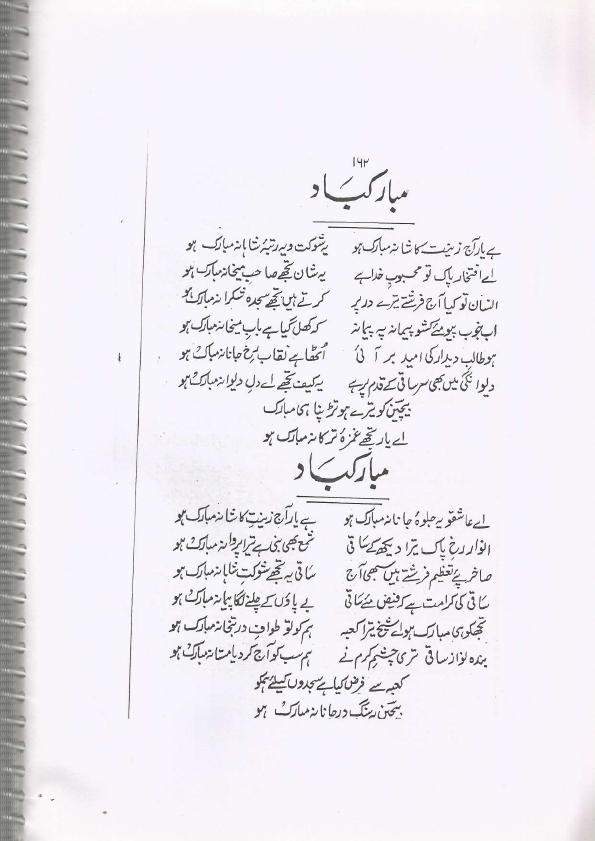 ۱۶۲
مبارکباد
ہے یار آج زینت کاشانہ مبارک ہو یہ شوکت و یہ رتبۂ شاہانہ مبارک ہو
اے افتخار پاک تو محبوب خدا ہے یہ شان تجھے صاحب میخانہ مبارک ہو
انسان تو کیا آج فرشتے ترے در پر کرتے ہیں تجھے سجدہ شکرانہ مبارک ہو
اب خوب پیو مے کشو پیمانہ پہ پیمانہ کہ کھل گیا ہے باب میخانہ مبارک ہو
ہو طالب دیدار کی امید بر آئی اٹھا ہے نقاب رخ جانانہ مبارک ہو
دیوانگی میں بھی سر ساقی کے قدم پر ہے یہ کیف تجھے اے دل دیوانہ مبارک ہو
بیچین کو ترے ہو تڑپنا ہی مبارک
اے یار تجھے غمزۂ ترکانہ مبارک ہو
مبارکباد
اے عاشقو یہ جلوۂ جانانہ مبارک ہو ہے یار آج زینت کاشانہ مبارک ہو
انوار رخ پاک ترا دیکھ کے ساقی شمع بھی بنی ہے ترا پروانہ مبارک ہو
حاضر پئے تعظیم فرشتے ہیں سبھی آج ساقی یہ تجھے شوکت شاہانہ مبارک ہو
ساقی کی کرامت ہے کہ فیض مئے ساقی بے پاؤں کے چلنے لگا پیمانہ مبارک ہو
تجھکو ہی مبارک ہو اے شیخ ترا کعبہ ہم کو تو طواف در بتخانہ مبارک ہو
بندہ نواز ساقی تری چشم کرم نے ہم سب کو آج کر دیا مستانہ مبارک ہو
کعبہ سے فرض کیا ہے سجدوں کیلئے ہمکو
بیچین سنگ در جانانہ مبارک ہو